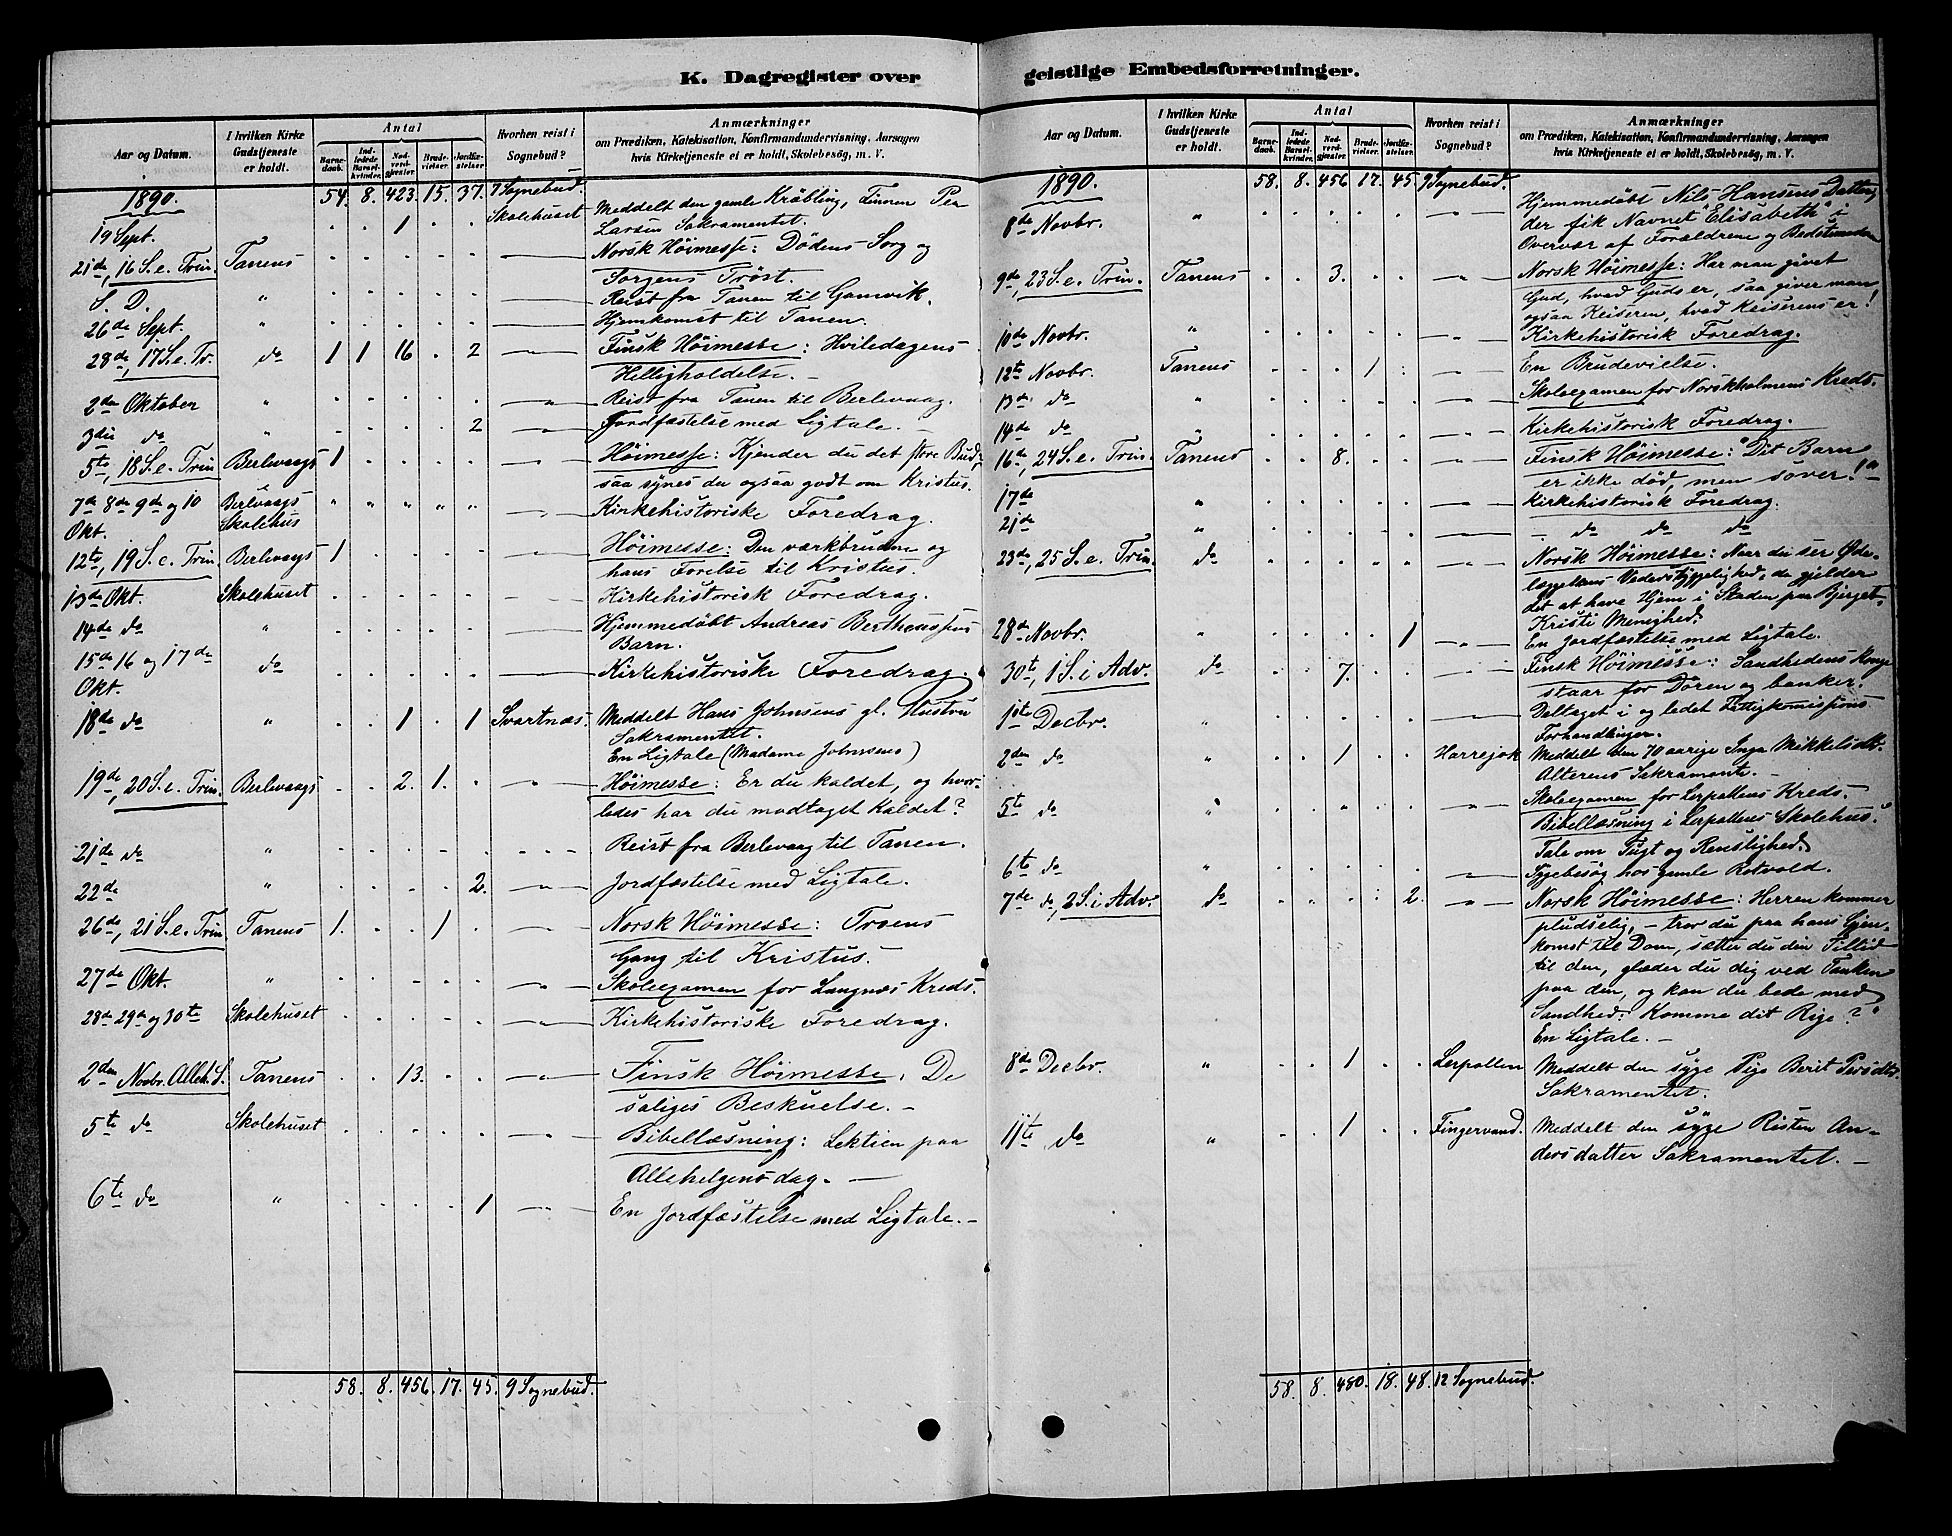 K. Dagregister over
Aar og Datum.
I hvilken Kirke Gudstjeneste er holdt.
Antal
Barnedaab.
Indledede Barselkvinder.
Nadverdgjæster.
Brudevielser.
Jordfæstelser.
Hvorhen reist i Sognebud?
Anmærkninger
om Prædiken, Katekisation, Konfirmandundervisning, Aarsagen
hvis Kirketjeneste ei er holdt, Skolebesøg, m. V.
1890. 54. 8. 423. 15. 37. 7 Sognebud.
19 Sept. 1 Skolehuset Meddelt den gamle Kröbling, Finnen Per
Larsen Sakramentet.
21de, 16 S. e. Trin. Tanens Norsk Höimesse: Dödens Sorg og
Sorgens Tröst.
S. D. " Reist fra Tanen til Gamvik.
26de Sept. " Hjemkomst til Tanen.
28de, 17 S. e. Tr. do 1 1 16 . 2 Finsk Höimesse: Hviledagens
Helligholdelse. –
2den Oktober " Reist fra Tanen til Berlevaag.
3die do " 2 Jordfæstelse med Ligtale. –
5te, 18 S. e. Trin Berlevaags 1 Höimesse: Kjender du det store Bud,
saa synes du ogsaa godt om Kristus.
7de 8de 9de og 10 Berlevaags Kirkehistoriske Foredrag.
Okt. Skolehus
12te, 19 S. e. Trin. Berlevaags 1 Höimesse: Den værkbrudne og
hans Förelse til Kristus.
13de Okt. Skolehuset Kirkehistorisk Foredrag.
14de do " Hjemmedöbt Andreas Bertheussens
Barn.
15de 16 og 17de do Kirkehistoriske Foredrag.
Okt.
18de do " 1 . 1 Svartnæs. Meddelt Hans Johnsens gl. Hustru
Sakramentet.
En Ligtale (Madame Johnsens)
19de, 20 S. e. Trin. Berlevaags 2. 1. Höimesse: Er du kaldet, og hvor-
ledes har du modtaget Kaldet?
21de do " Reist fra Berlevaag til Tanen.
22de " 2. Jordfæstelse med Ligtale.
26de, 21 S. e. Trin Tanens 1. 1 Norsk Höimesse: Troens
Gang til Kristus.
27de Okt. " Skoleexamen for Langnæs Kreds.
28de 29de og 30te Skolehuset Kirkehistoriske Foredrag.
2den Novbr. Alleh. S. Tanens 13. Finsk Höimesse. De
saliges Beskuelse. –
5te do Skolehuset Bibellæsning: Lektien paa
Allehelgensdag. –
6te do " 1 En Jordfæstelse med Ligtale. –
58. 8. 456. 17. 45. 9 Sognebud.
geistlige Embedsforretninger.
Aar og Datum.
I hvilken Kirke Gudstjeneste er holdt.
Antal
Barnedaab.
Indledede Barselkvinder.
Nadverdgjæster.
Brudevielser.
Jordfæstelser.
Hvorhen reist i Sognebud?
Anmærkninger
om Prædiken, Katekisation, Konfirmandundervisning, Aarsagen
hvis Kirketjeneste ei er holdt, Skolebesøg, m. V.
1890. 58. 8. 456. 17. 45. 9 Sognebud.
8de Novbr. " Hjemmedöbt Nils Hansens Datter,
der fik Navnet "Elisabeth" i
Overvær af Forældrene og Bedstemoderen
9de, 23 S. e. Trin. Tanens 3. Norsk Höimesse: Har man givet
Gud, hvad Guds er, saa giver man
ogsaa Keiseren, hvad Keiserens er!
10de Novbr. " Kirkehistorisk Foredrag.
12te Novbr. Tanens 1 En Brudevielse.
13de do " Skoleexamen for Norskholmens Kreds.
14de do " Kirkehistorisk Foredrag.
16de, 24 S. e. Trin. Tanens 8. Finsk Höimesse: "Dit Barn
er ikke död, men sover!" –
17de " Kirkehistorisk Foredrag.
21de " do do do
23de, 25 S. e. Trin. do Norsk Höimesse: Naar du ser Öde-
læggelsens Vederstyggelighed, da gjelder
det at have Hjem i Staden paa Bjerget,
Kristi Menighed.
28de Novbr. " 1 En Jordfæstelse med Ligtale.
30te, 1 S. i Adv. do 7. Finsk Höimesse: Sandhedens Konge
staar for Dören og banker.
1ste Decbr. " Deltaget i og ledet Fattigkomissions
Forhandlinger.
2den do " 1 Harrejok Meddelt den 70 aarige Inga Mikkelsdtr.
Alterens Sakramente. –
5te do " Skoleexamen for Lerpollens Kreds.
Bibellæsning i Lerpollens Skolehus.
Tale om Tugt og Renslighed.
6te do " Sygebesög hos gamle Rotvold.
7de do, 2 S. i Adv. do 2. Norsk Höimesse: Herren kommer
pludselig, – tror du paa hans Gjen-
komst til Dom, sætter du din Tillid
til den, glæder du dig ved Tanken
paa den, og kan du bede med
Sandhed: Komme dit Rige?"
En Ligtale. –
8de Decbr. " 1 Lerpollen Meddelt den syge Pige Berit Persdtr.
Sakramentet.
11te do " 1 Fingervand. Meddelt den syge Risten An-
dersdatter Sakramentet. –
58. 8. 480. 18. 48. 12 Sognebud.